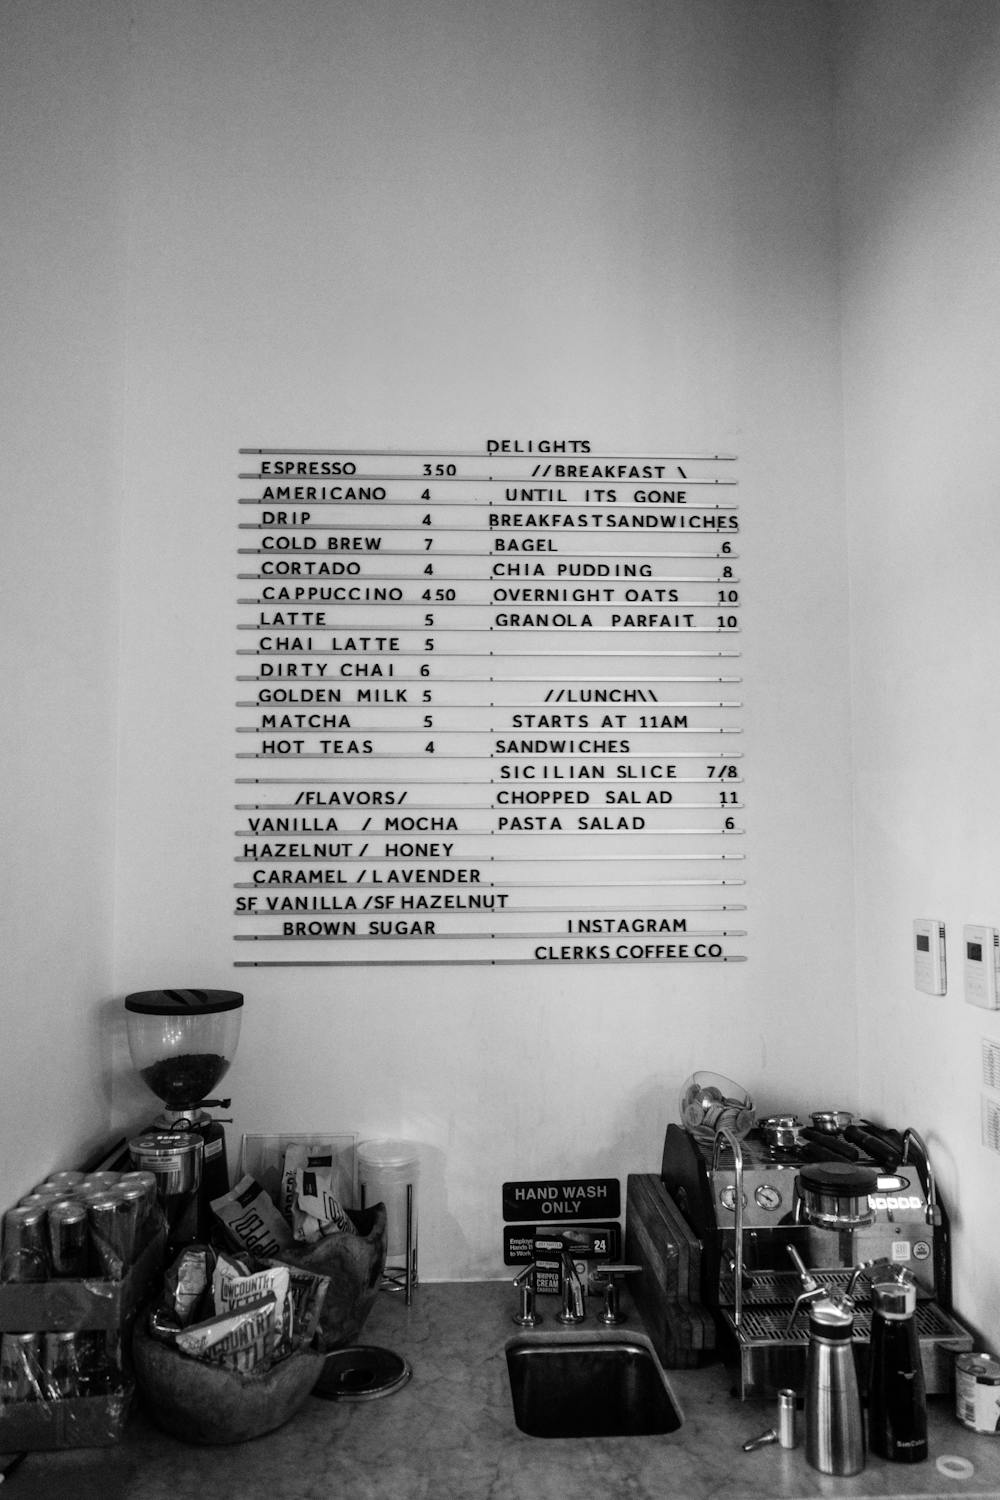 DELIGHTS
ESPRESSO 350
AMERICANO 4
DRIP 4
COLD BREW 7
CORTADO 4
CAPPUCCINO 450
LATTE 5
CHAI LATTE 5
DIRTY CHAI 6
GOLDEN MILK 5
MATCHA 5
HOT TEAS 4
/FLAVORS/
VANILLA / MOCHA
HAZELNUT / HONEY
CARAMEL / LAVENDER
SF VANILLA /SF HAZELNUT
BROWN SUGAR
//BREAKFAST \
UNTIL ITS GONE
BREAKFASTSANDWICHES
BAGEL 6
CHIA PUDDING 8
OVERNIGHT OATS 10
GRANOLA PARFAIT 10
//LUNCH\\
STARTS AT 11AM
SANDWICHES
SICILIAN SLICE 7/8
CHOPPED SALAD 11
PASTA SALAD 6
INSTAGRAM
CLERKS COFFEE CO
HAND WASH
ONLY
24
WHIPPED
CREAM
CHARGERS